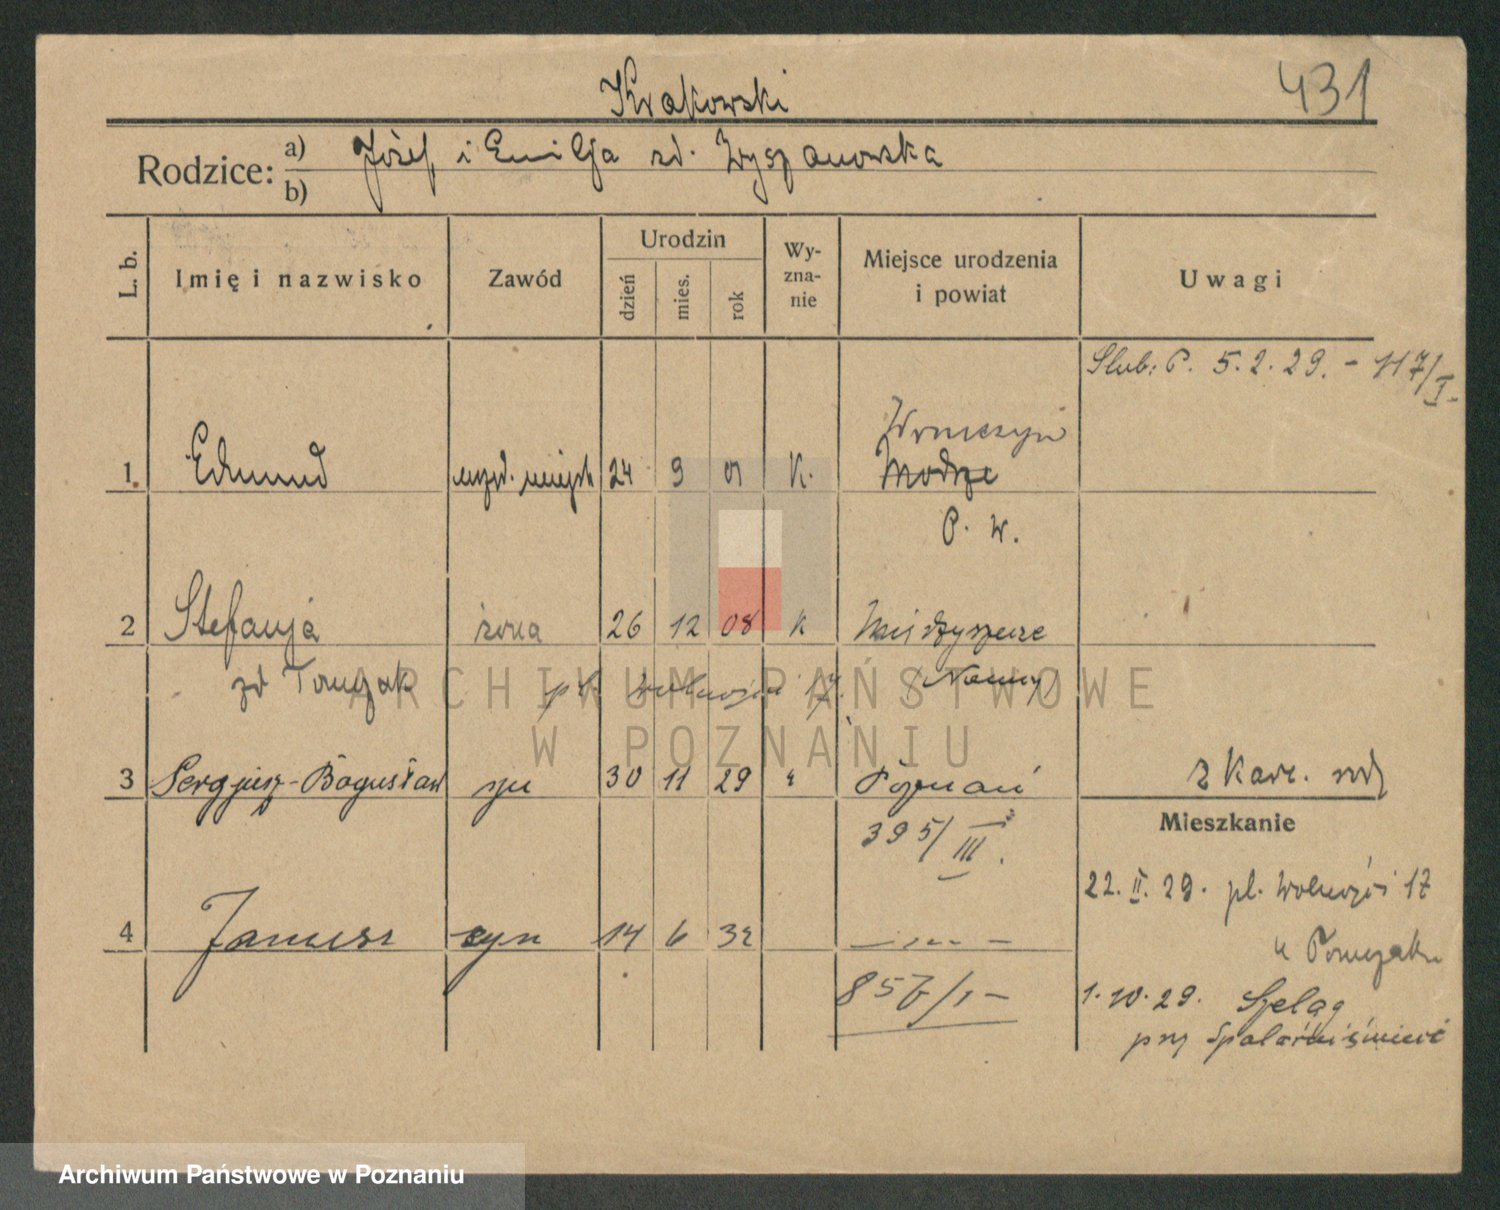 Krakowski
431
Rodzice: a) Józef i Emilja zd. Wyszanowska
b)
L. b. Imię i nazwisko Zawód Urodzin dzień mies. rok Wy-zna-nie Miejsce urodzenia i powiat Uwagi
Slub: P. 5. 2. 29. - 117/I.
Wronczyn
1. Edmund urzęd. miejsk 24 9 01 K. Modrze
P. W.
2 Stefanja żona 26 12 08 K
zd Tomczak pl. Wolności 17. (Niemcy)
3 Sergjusz-Bogusław syn 30 11 29 " Poznań z karc. rodz
395/III.
Mieszkanie
22. II. 29. pl. Wolności 17
4 Janusz syn 14 6 32 — „ —
u Tomczaka
856/I -
1. 10. 29. Szeląg
przy Spalarni śmieci
ARCHIWUM PAŃSTWOWE
W POZNANIU
Archiwum Państwowe w Poznaniu